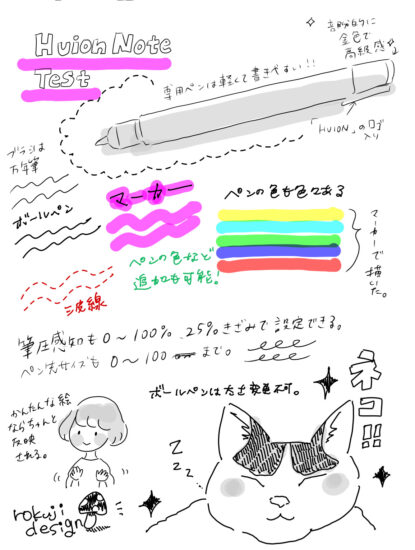 Huion Note
Test
部分的に
金色で
高級感
専用ペンは軽くて書きやすい!!
「HUION」のロゴ
入り
ブラシは
万年筆
ボールペン
マーカー
ペンの色も色々ある
マーカーで描いた。
ペンの色など
追加も可能!
三皮線
筆圧感知も0〜100%、25%きざみで設定できる。
ペン先サイズも0〜100まで。
ボールペンは太さ変色不可。
ネコ!!
かんたんな絵
ならちゃんと
反映
される。
Z Z Z
rokuji
design